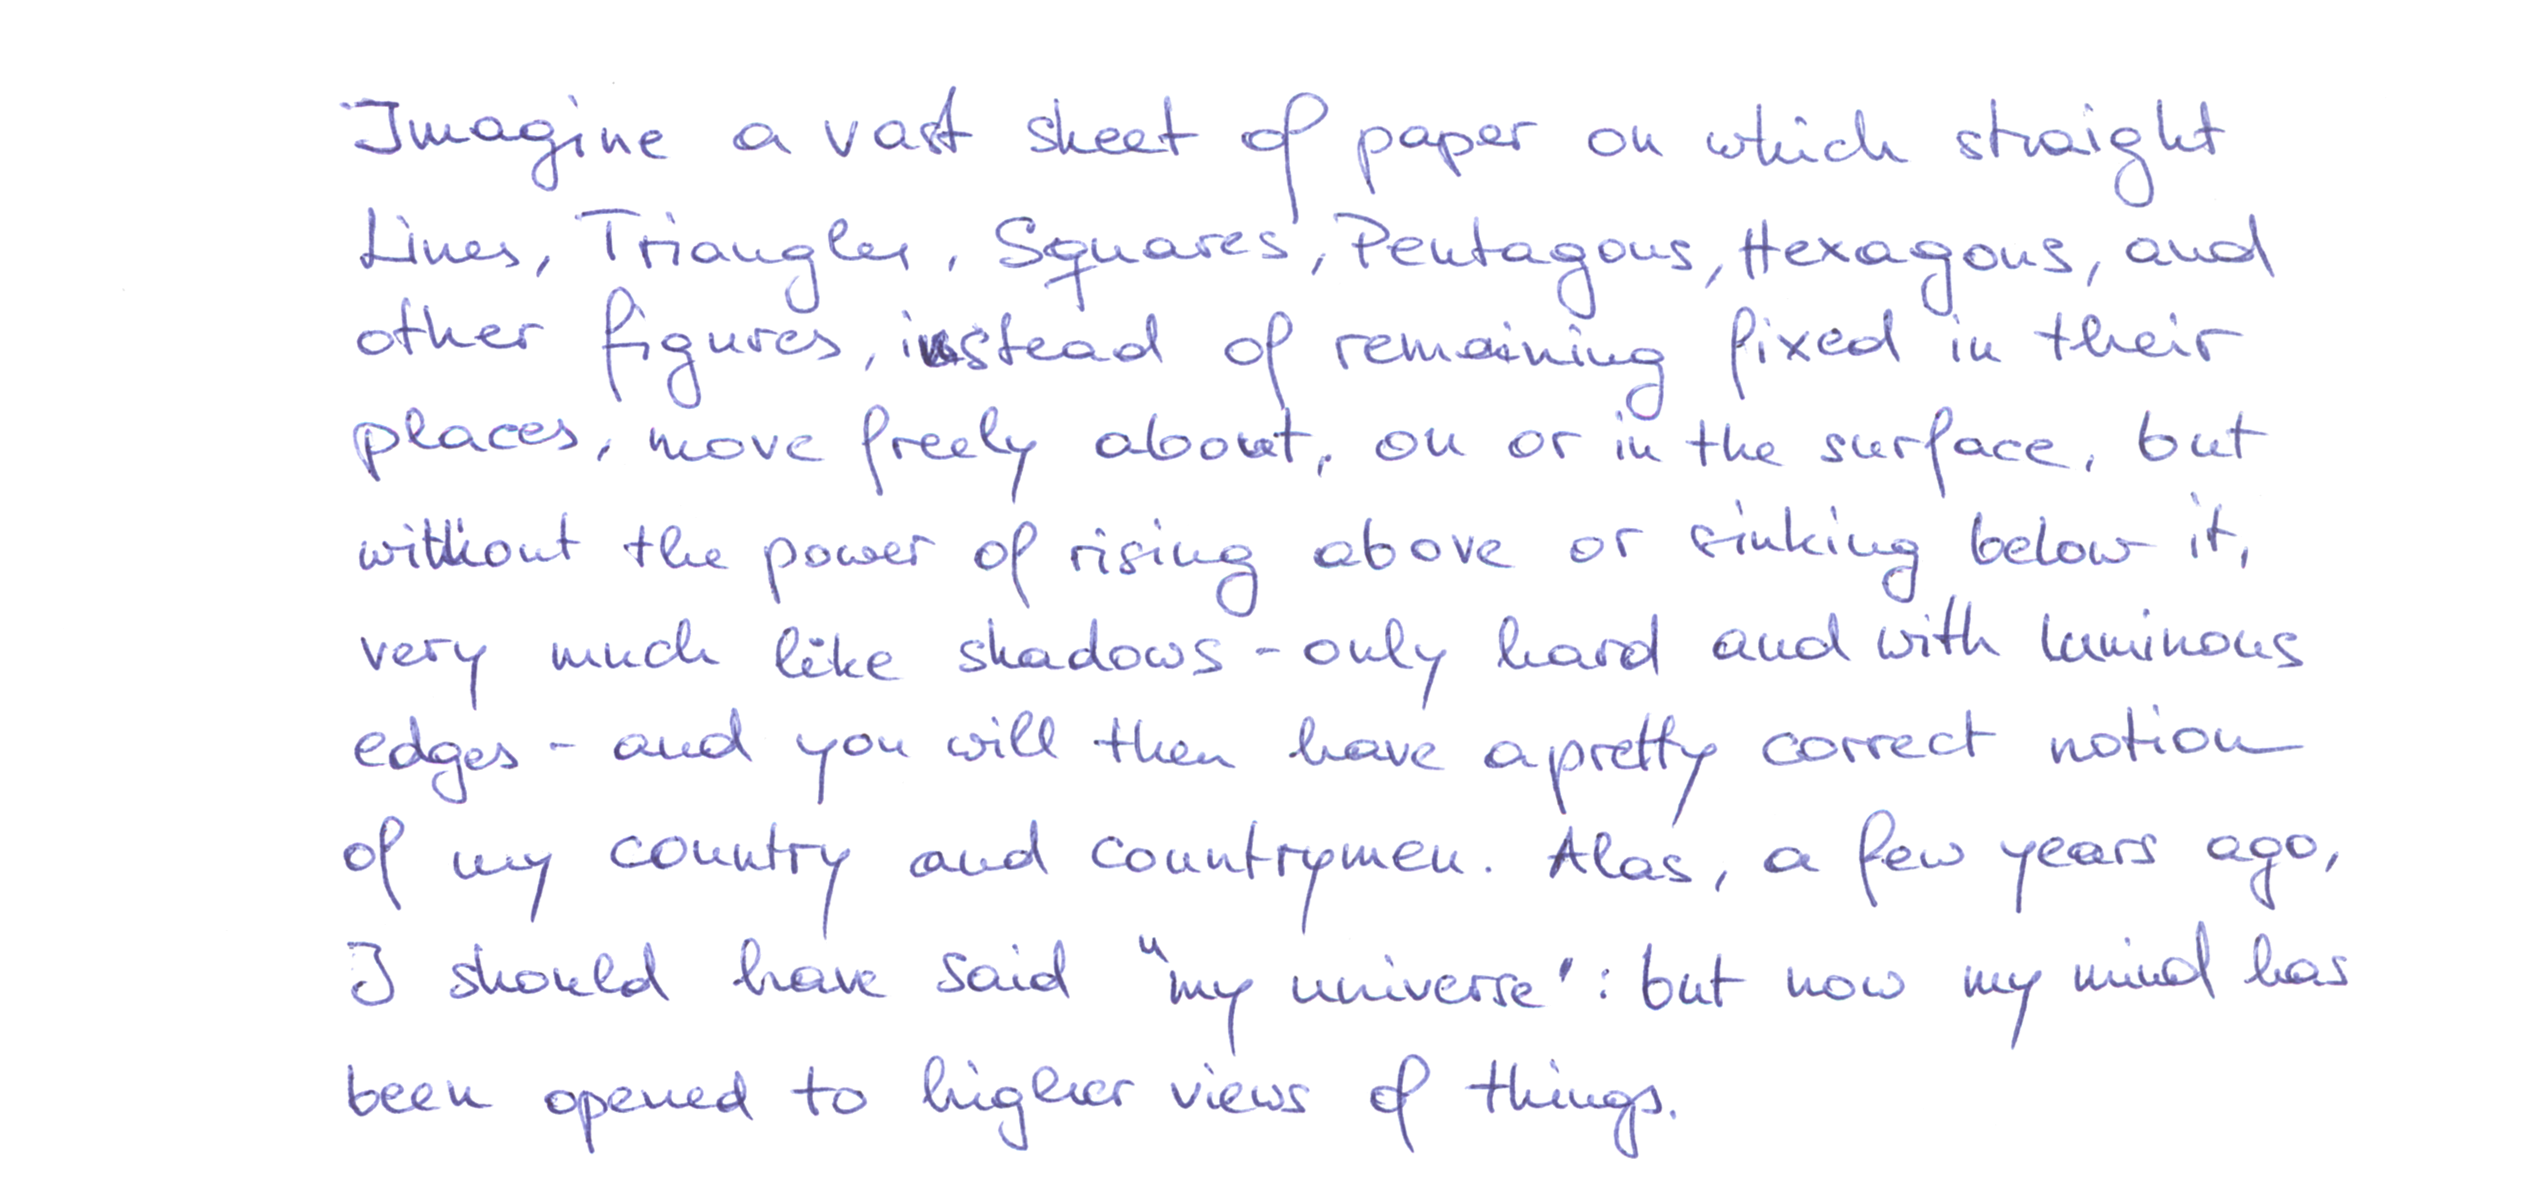 Imagine a vast sheet of paper on which straight
Lines, Triangles, Squares, Pentagons, Hexagons, and
other figures, instead of remaining fixed in their
places, move freely about, on or in the surface, but
without the power of rising above or sinking below it,
very much like shadows - only hard and with luminous
edges - and you will then have a pretty correct notion
of my country and countrymen. Alas, a few years ago,
I should have said "my universe": but now my mind has
been opened to higher views of things.